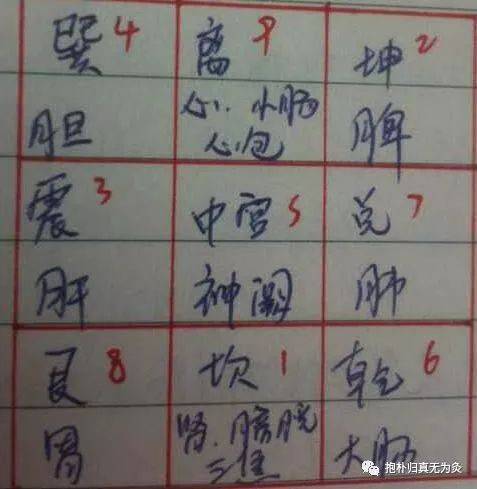 巽 4 离 9 坤 2
胆 心、小肠 脾
心包
震 3 中宫 5 兑 7
肝 神阙 肺
艮 8 坎 1 乾 6
胃 肾、膀胱 大肠
三焦
抱朴归真无为灸